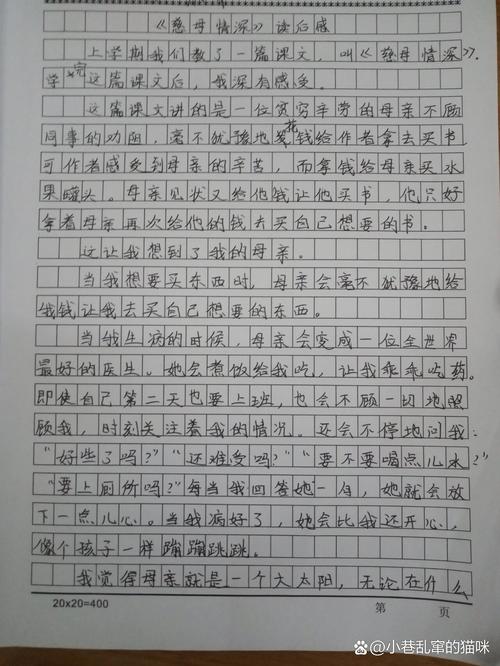 《慈母情深》读后感
上学期我们教了一篇课文，叫《慈母情深》.
学完这篇课文后，我深有感受。
这篇课文讲的是一位贫穷辛劳的母亲不顾
同事的劝阻，毫不犹豫地花钱给作者拿去买书
可作者感受到母亲的辛苦，而拿钱给母亲买水
果罐头。母亲见状又给他钱让他买书，他只好
拿着母亲再次给他的钱去买自己想要的书。
这让我想到了我的母亲。
当我想要买东西时，母亲会毫不犹豫地给
我钱让我去买自己想要的东西。
当我生病的时候，母亲会变成一位全世界
最好的医生。她会煮饭给我吃，让我乖乖吃药。
即使自己第二天也要上班，也会不顾一切地照
顾我，时刻关注着我的情况。还会不停地问我：
“好些了吗？”“还难受吗？”“要不要喝点儿水？”
“要上厕所吗？”每当我回答她一句，她就会放
下一点儿心。当我病好了，她会比我还开心，
像个孩子一样蹦蹦跳跳。
我觉得母亲就是一个大太阳，无论在什么
20×20=400 第 页
@小巷乱窜的猫咪